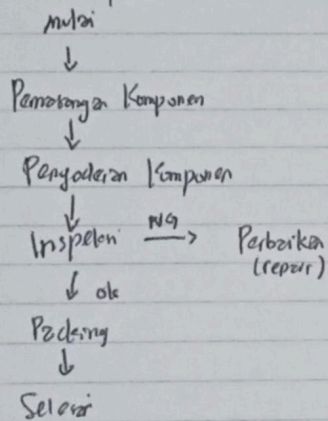 mulai
↓
Pemasangan Komponen
↓
Penyoderan Komponen
↓
Inspeksi NG → Perbaikan
(repair)
↓ ok
Packing
↓
Selesai